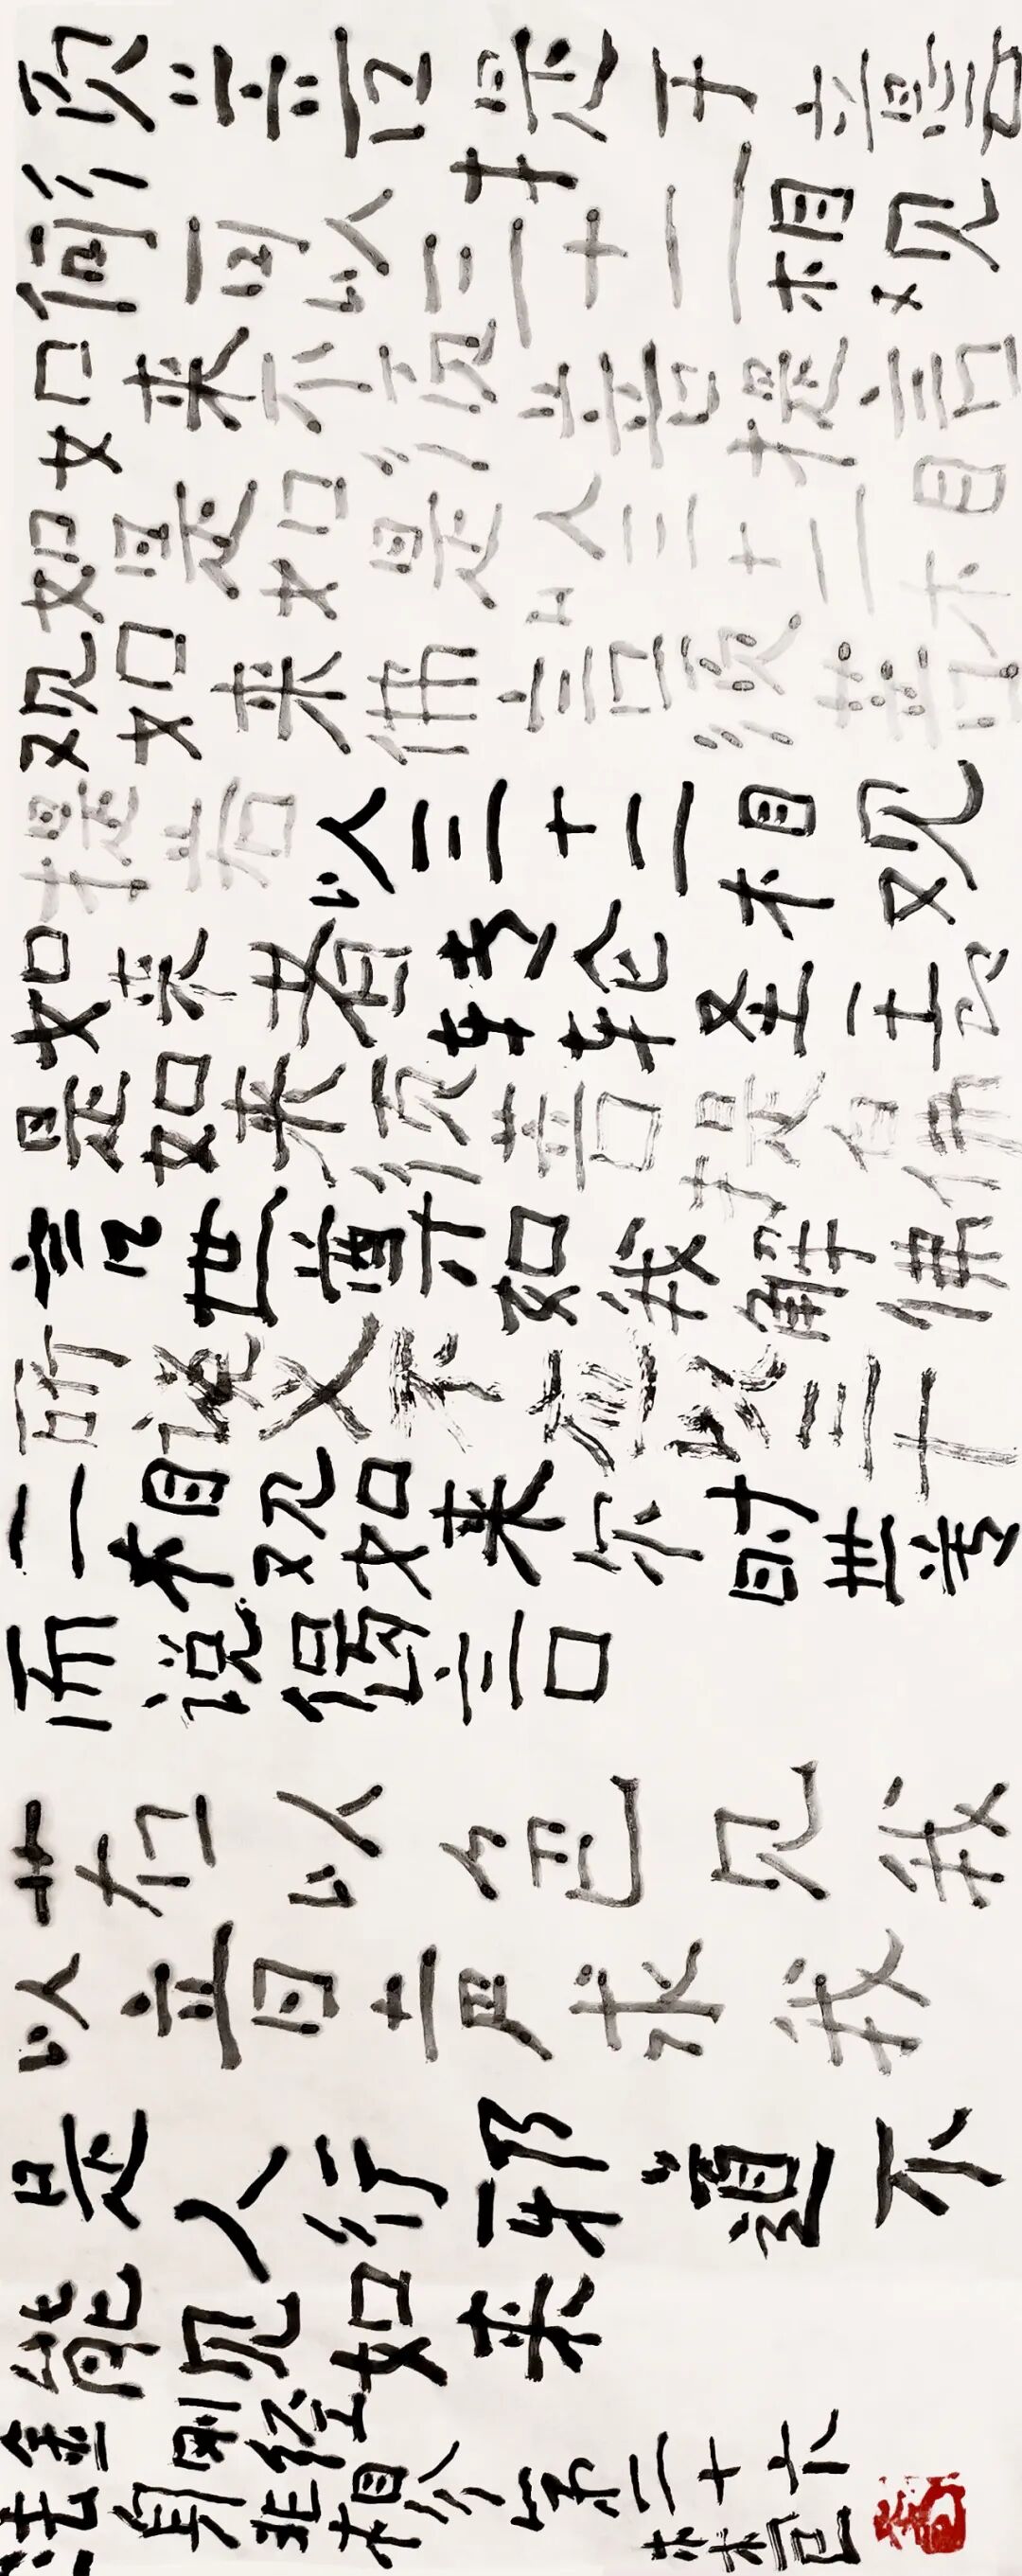 须菩提于意云
何可以三十二相观
如来不须菩提言
如是如是以三十二相
观如来佛言须菩
提若以三十二相观
如来者转轮圣王
是如来须菩提白佛
言世尊如我解佛
所说义不应以三十
二相观如来尔时世尊
而说偈言
若以色见我
以音声求我
是人行邪道不
能见如来
金刚经
法身非相分第二十六